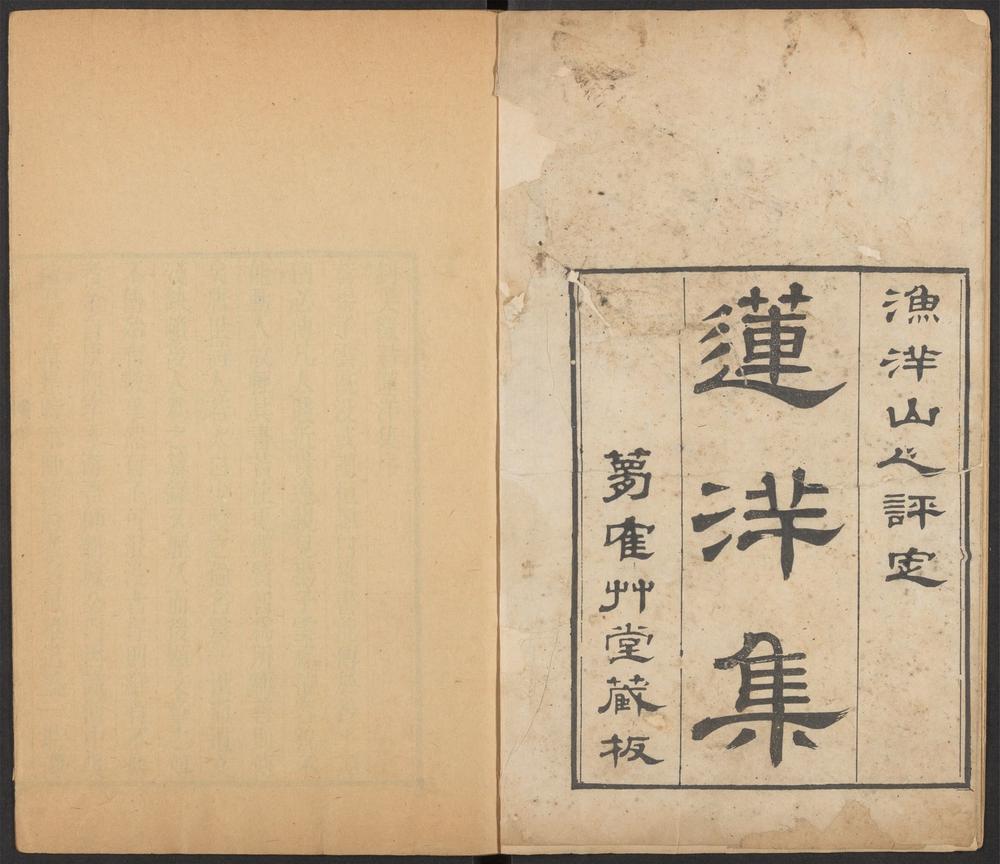 漁洋山人評定
蓮洋集
夢隺艸堂藏板